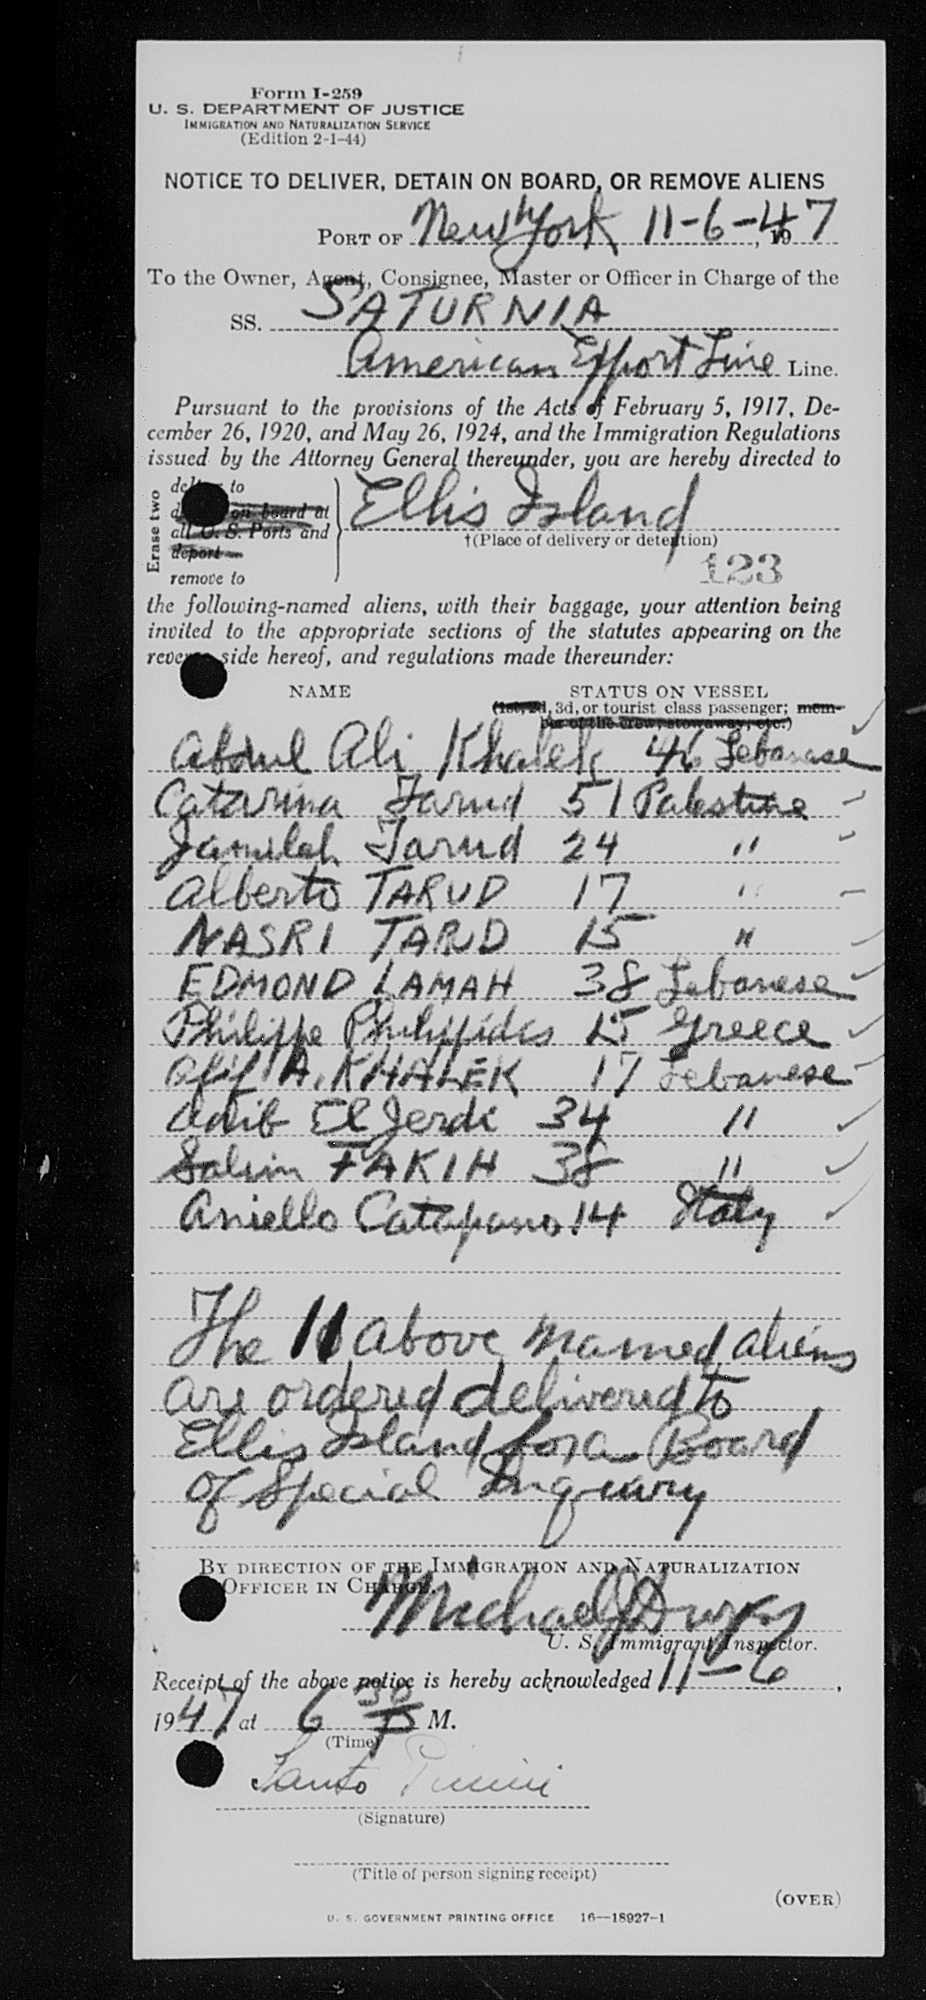 Form I-259
U. S. DEPARTMENT OF JUSTICE
IMMIGRATION AND NATURALIZATION SERVICE
(Edition 2-1-44)
NOTICE TO DELIVER, DETAIN ON BOARD, OR REMOVE ALIENS
PORT OF New York 11-6-, 1947
To the Owner, Agent, Consignee, Master or Officer in Charge of the
SS. SATURNIA
American Export Line Line.
Pursuant to the provisions of the Acts of February 5, 1917, De-
cember 26, 1920, and May 26, 1924, and the Immigration Regulations
issued by the Attorney General thereunder, you are hereby directed to
Erase two
to
on board at
all U. S. Ports and
deport
remove to
Ellis Island
†(Place of delivery or detention)
123
the following-named aliens, with their baggage, your attention being
invited to the appropriate sections of the statutes appearing on the
reverse side hereof, and regulations made thereunder:
NAME STATUS ON VESSEL
(1st, 2d, 3d, or tourist class passenger; mem-
ber of the crew, stowaway, etc.)
Abdul Ali Khalek 46 Lebanese
Catarina Tarud 51 Palestine
Jamilah Tarud 24 "
Alberto TARUD 17 "
NASRI TARUD 15 "
EDMOND LAMAH 38 Lebanese
Philippe Philippides 25 Greece
Afif A. KHALEK 17 Lebanese
Adib El Jerdi 34 "
Salim FAKIH 38 "
Aniello Catapano 14 Italy
The 11 above named aliens
are ordered delivered to
Ellis Island for a Board
of Special Inquiry
BY DIRECTION OF THE IMMIGRATION AND NATURALIZATION
OFFICER IN CHARGE.
Michael J
U. S. Immigrant Inspector.
Receipt of the above notice is hereby acknowledged 11-6,
1947 at 6 30 P M.
(Time)
Santo
(Signature)
(Title of person signing receipt)
(OVER)
U. S. GOVERNMENT PRINTING OFFICE 16—18927-1